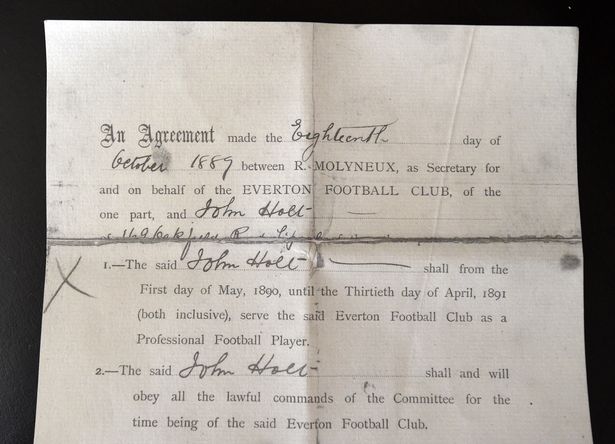 An Agreement made the Eighteenth day of
October 1889 between R. MOLYNEUX, as Secretary for
and on behalf of the EVERTON FOOTBALL CLUB, of the
one part, and John Holt
1.—The said John Holt shall from the
First day of May, 1890, until the Thirtieth day of April, 1891
(both inclusive), serve the said Everton Football Club as a
Professional Football Player.
2.—The said John Holt shall and will
obey all the lawful commands of the Committee for the
time being of the said Everton Football Club.